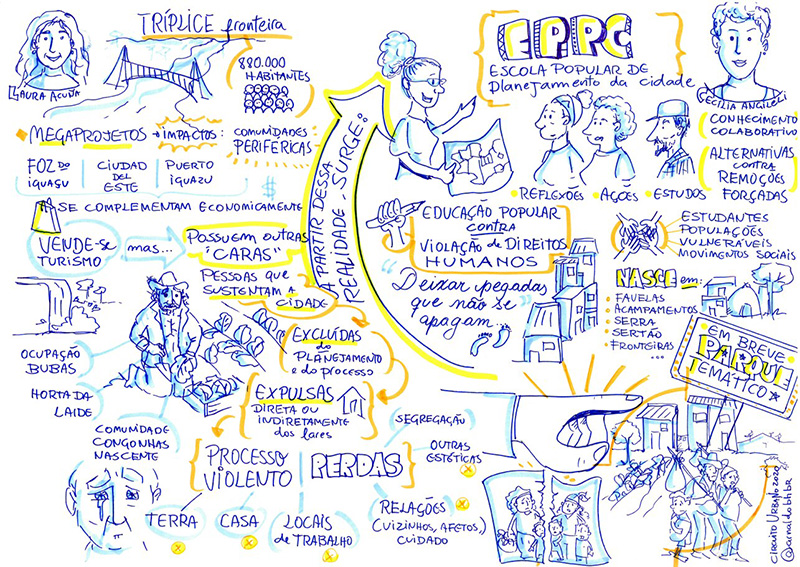 TRÍPLICE fronteira
LAURA ACUÑA
880.000
HABITANTES
MEGAPROJETOS → IMPACTOS:
COMUNIDADES
PERIFÉRICAS
FOZ DO
IGUAÇU
CIUDAD
DEL
ESTE
PUERTO
IGUAZU
$
SE COMPLEMENTAM ECONOMICAMENTE
VENDE-SE
TURISMO
mas...
POSSUEM OUTRAS
"CARAS"
PESSOAS QUE
SUSTENTAM A
CIDADE
EXCLUÍDAS
do
PLANEJAMENTO
e do processo
EXPULSAS
DIRETA OU
INDIRETAMENTE
dos lares
OCUPAÇÃO
BUBAS
HORTA DA
LAIDE
COMUNIDADE
CONGONHAS
NASCENTE
PROCESSO
VIOLENTO
PERDAS
SEGREGAÇÃO
OUTRAS
ESTÉTICAS
TERRA
CASA
LOCAIS
de TRABALHO
RELAÇÕES
(VIZINHOS, AFETOS,)
CUIDADO
A PARTIR DESSA
REALIDADE, SURGE:
EPPC
ESCOLA POPULAR DE
planejamento da cidade
CECILIA ANGILELI
CONHECIMENTO
COLABORATIVO
ALTERNATIVAS
contra
REMOÇÕES
FORÇADAS
• REFLEXÕES • AÇÕES • ESTUDOS
EDUCAÇÃO POPULAR
contra
VIOLAÇÃO de DIREITOS
HUMANOS
"Deixar pegadas
que não se
apagam...
ESTUDANTES
POPULAÇÕES
VULNERÁVEIS
MOVIMENTOS SOCIAIS
NASCE em:
• FAVELAS
• ACAMPAMENTOS
• SERRA
• SERTÃO
• FRONTEIRAS
...
EM BREVE
PARQUE
TEMÁTICO
CIRCUITO URBANO 2020
@arnaldobhbr